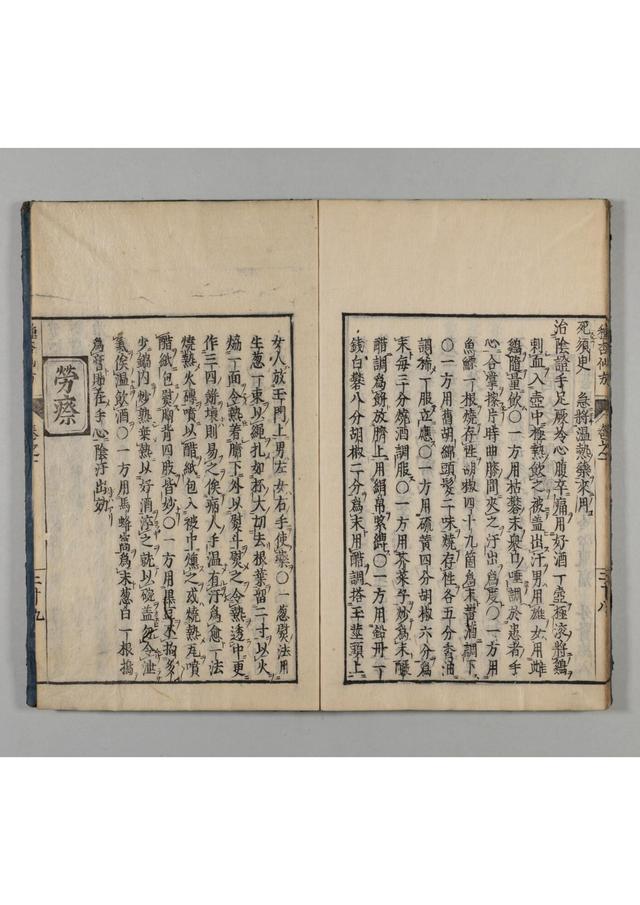 死須臾　急將溫熱藥來用
治陰證手足厥冷心腹卒痛用好酒一壺極滾將雞
刺血入壺中極熱飲之被蓋出汗男用雄女用雌
雞隨量飲〇一方用枯礬末衆口唾調於患者手
心合掌擦片時曲膝間夾之汗出爲度〇一方用
魚鰾一根燒存性胡椒四十九箇爲末醋酒調下
〇一方用舊胡綿頭髮二味燒存性各五分香油
調稀一服立應〇一方用硫黃四分胡椒六分爲
末每三分燒酒調服〇一方用芥菜子炒爲末醋
醋調爲餅放臍上用絹帛緊縛〇一方用鉛丹一
錢白礬八分胡椒二分爲末用醋調搭玉莖頭上
三十八
女人放玉門上男左女右手使藥〇一葱熨法用
生葱一束以繩扎如杯大切去根葉留二寸以火
煸一面令熱着臍下外以熨斗熨之令熱透中更
作三四餅壞則易之俟病人手溫有汗爲愈一法
燒熱火磚噴以醋紙包入被中燻之或燒熱瓦噴
醋紙包熨胸背四肢皆妙〇一方用
少鍋內炒熟乘熱以好酒淬之就以碗蓋
氣俟溫飲酒〇一方用馬蜂窩爲末葱白一根搗
爲膏塗在手心陰汗出効
勞瘵
二十九